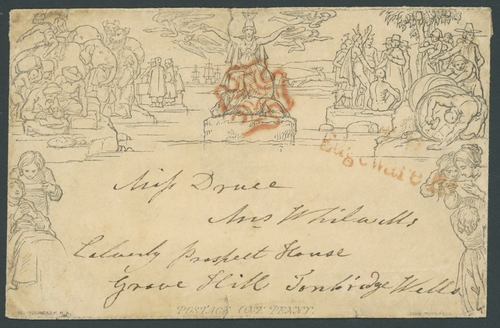 Miss Druce
Mrs Whitwells
Calverly Prospect House
Grove Hill Tonbridge Wells
POSTAGE ONE PENNY.